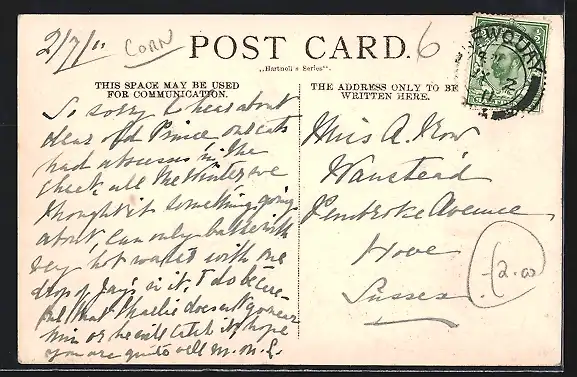 2/7/11 CORN
POST CARD. 6
"Hartnoll's Series".
THIS SPACE MAY BE USED
FOR COMMUNICATION.
So sorry to hear about
dear Old Prince our cats
had abscesses in the
cheek all the Winter we
thought it something going
about, can only bathe with
very hot water with one
drop of Jays in it, I do be care-
ful that Charlie doesn't go near
him or he will catch it, hope
you are quite well M.M.L.
THE ADDRESS ONLY TO BE
WRITTEN HERE.
Miss A. Row
Wanstead
Pembroke Avenue
Hove
Sussex
£2.00